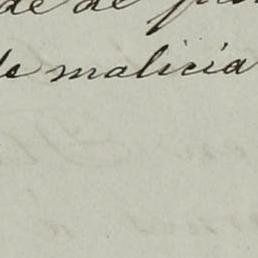 de de
de malicia